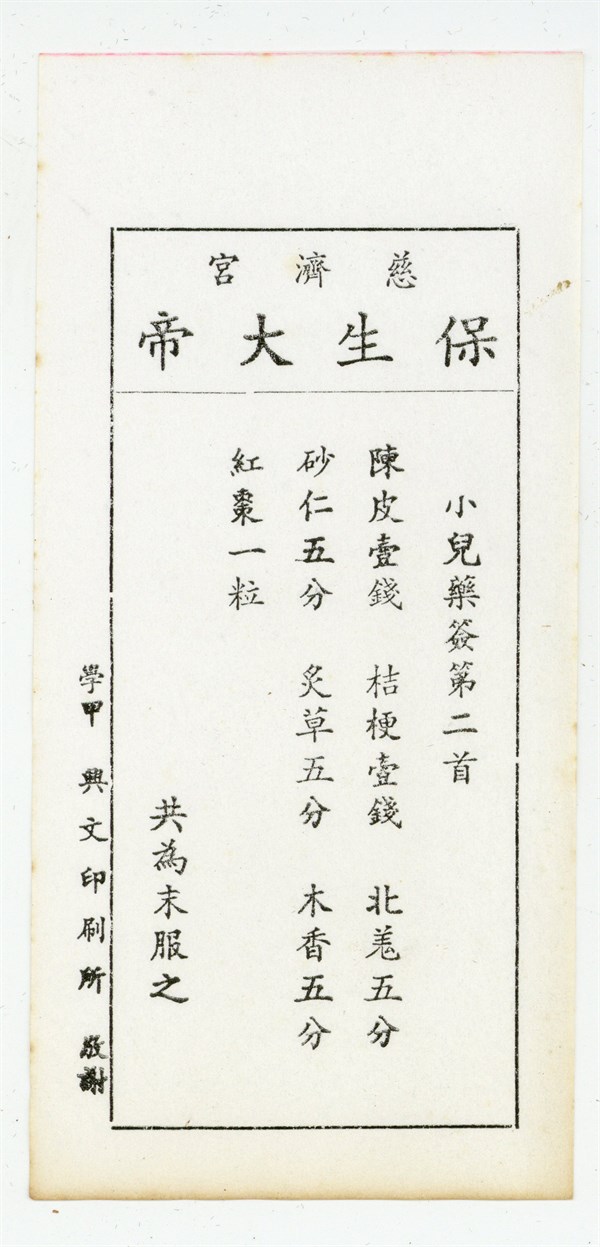 慈濟宮
保生大帝
小兒藥簽第二首
陳皮壹錢 桔梗壹錢 北羗五分
砂仁五分 炙草五分 木香五分
紅棗一粒
共為末服之
學甲 興文印刷所 敬謝